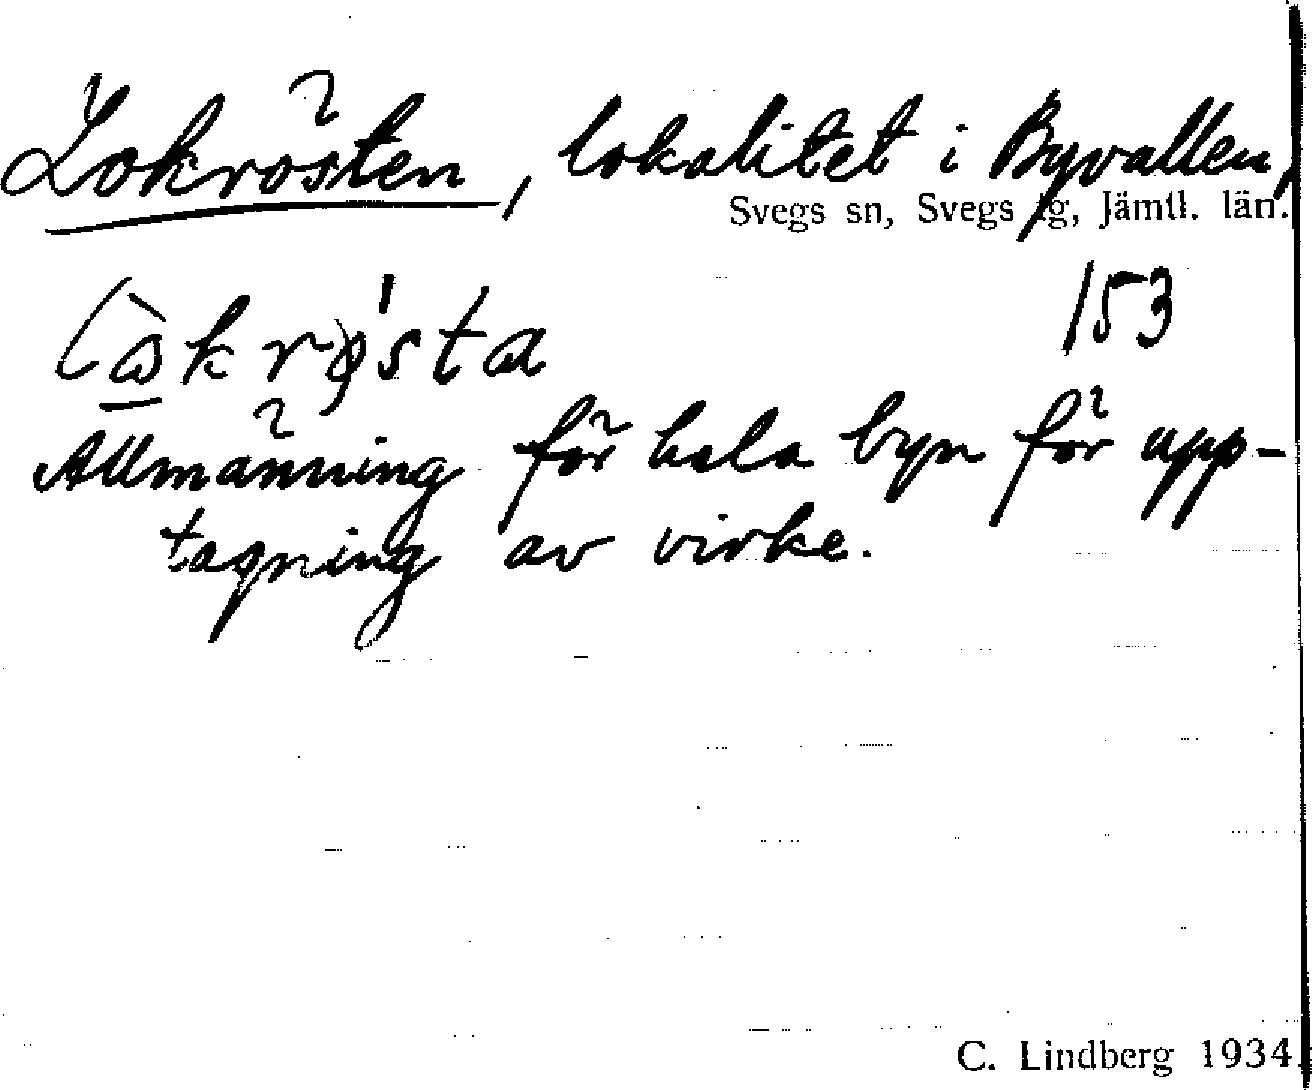 Lokrösten, lokalitet i Byvallen,
Svegs sn, Svegs tg, Jämtl. län.
153
Allmänning för hela byn för upp-
tagning av virke.
C. Lindberg 1934.